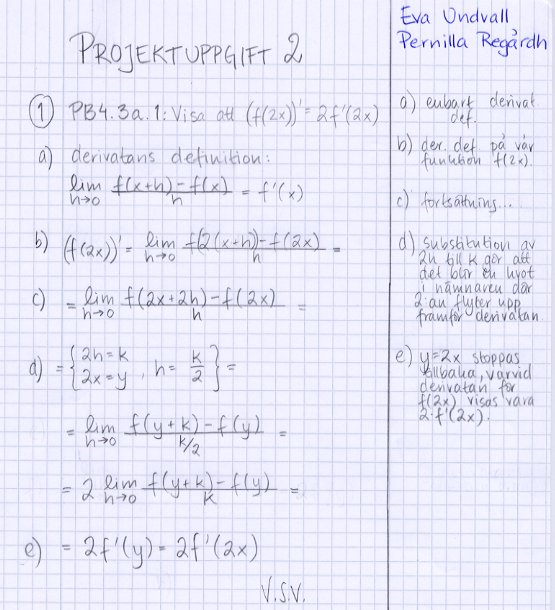 PROJEKTUPPGIFT 2
Eva Undvall
Pernilla Regårdh
① PB4.3a.1: Visa att (f(2x))' = 2f'(2x)
a) derivatans definition:
lim h→0 f(x+h)-f(x) / h = f'(x)
b) (f(2x))' = lim h→0 f(2(x+h))-f(2x) / h =
c) = lim h→0 f(2x+2h)-f(2x) / h =
d) = { 2h=k 2x=y , h= k/2 } =
= lim h→0 f(y+k)-f(y) / k/2 =
= 2 lim h→0 f(y+k)-f(y) / k =
e) = 2f'(y) = 2f'(2x)
V.S.V.
a) enbart derivat.
def.
b) der. def på vår
funktion f(2x).
c) fortsättning...
d) Substitution av
2h till k gör att
det blir en
i nämnaren där
2'an flyter upp
framför derivatan.
e) y=2x stoppas
tillbaka, varvid
derivatan för
f(2x) visas vara
2·f'(2x).